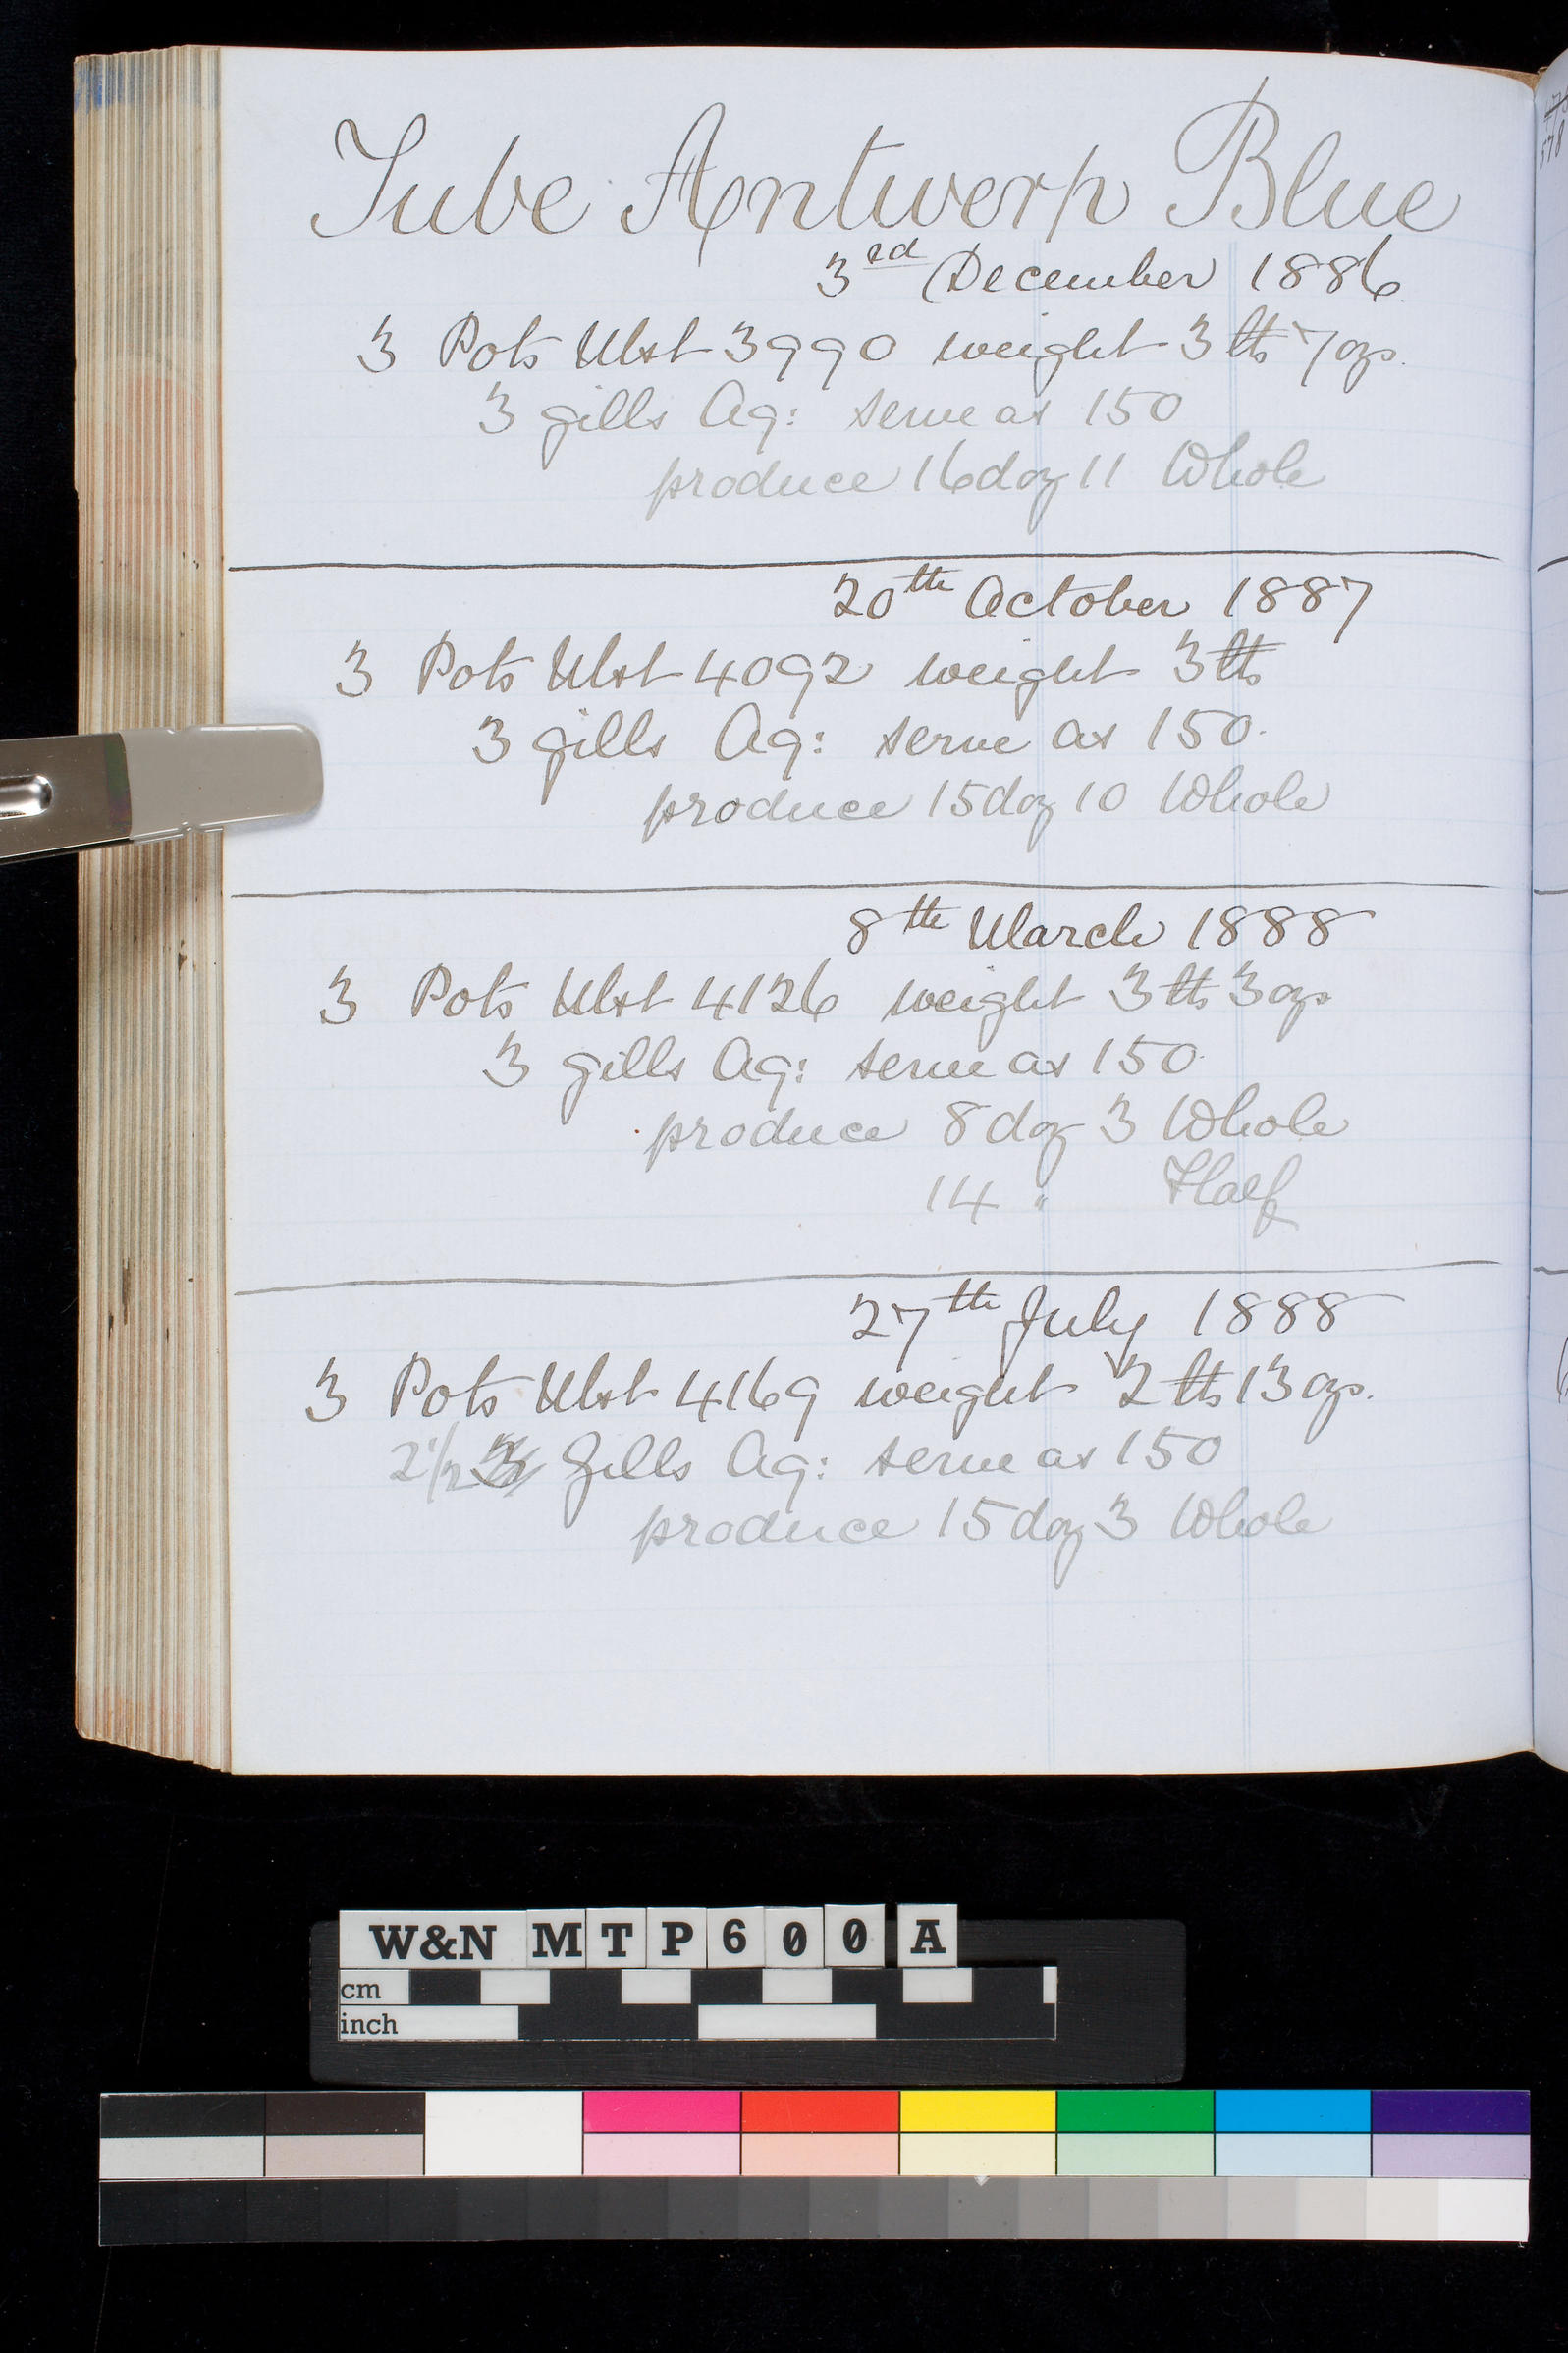 Tube Antwerp Blue
3rd December 1886
3 Pots Mxt 3990 weight 3 lbs 7 ozs.
3 gills Aq: serve as 150
produce 16 doz 11 Whole
20th October 1887
3 Pots Mxt 4092 weight 3 lbs
3 gills Aq: serve as 150.
produce 15 doz 10 Whole
8th March 1888
3 Pots Mxt 4126 weight 3 lbs 3 ozs
3 gills Aq: serve as 150
produce 8 doz 3 Whole
14 " Half
27th July 1888
3 Pots Mxt 4169 weight 2 lbs 13 ozs.
2 1/2 3 Gills Aq: serve as 150
produce 15 doz 3 Whole
W&N MTP600 A
cm
inch